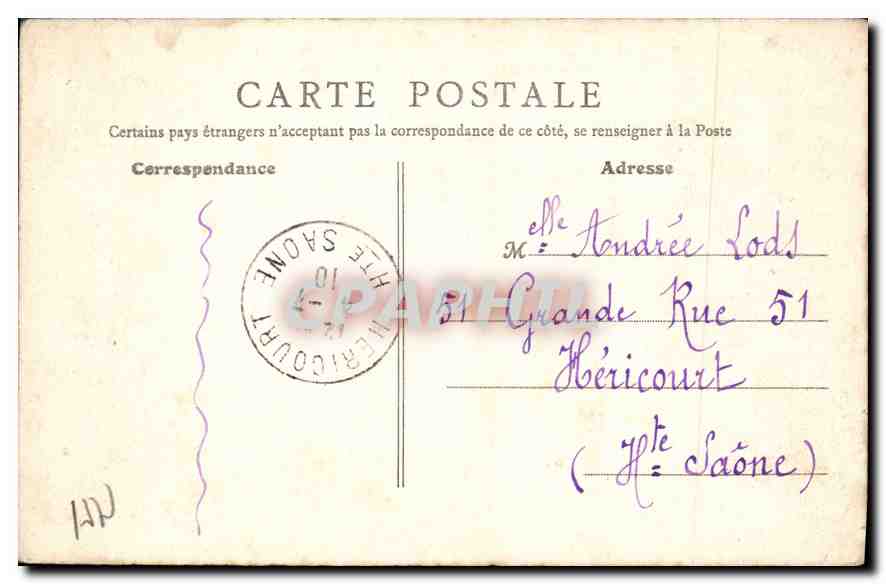 CARTE POSTALE
Certains pays étrangers n'acceptant pas la correspondance de ce côté, se renseigner à la Poste
Correspondance
Adresse
Melle Andrée Lods
51 Grande Rue 51
Héricourt
(Hte Saône)
HERICOURT
HTE SAONE
10
CPAPHIL